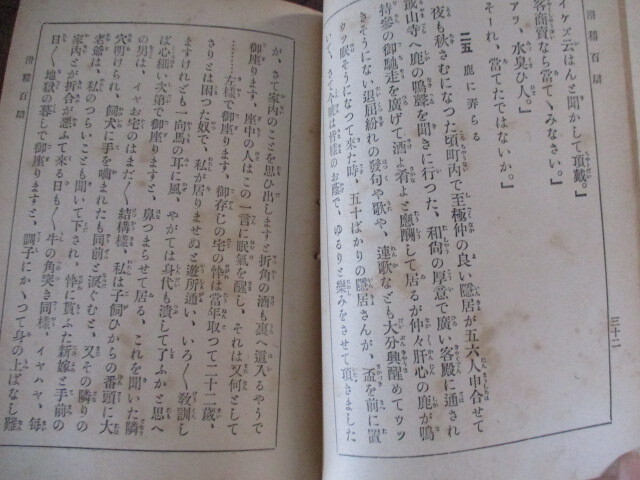 滑稽百話
三十二
イケメ云はんと聞かして頂戴。』
客商賣なら當てゝみなさい。』
アツ、水臭ひ人。』
そーれ、當てたではないか。』
二五 鹿に弄らる
夜も秋さむになつた頃町内で至極仲の良い隱居が五六人申合せて
或山寺へ鹿の鳴聲を聞きに行つた、和尚の厚意で廣い客殿に通され
持參の御馳走を廣げて酒よ肴よと應酬して居るが仲々肝心の鹿が鳴
きそうにない退屈紛れの發句や歌や、連歌なども大分興醒めてウツ
ウツ眠そうになつて來た時、五十ばかりの隱居さんが、盃を前に置
いて、さて今晩は皆樣のお蔭で、ゆるりと樂みをさせて頂きました
が、さて家内のことを思ひ出しますと折角の酒も裏へ這入るやうで
御座ります、座中の人はこの一言に眠氣を醒し、それは又何として
…………左樣で御座ります、御存じの宅の忰は當年取つて二十二歳、
さりとは困つた奴で、私が居りませぬと遊所通い、いろ〱敎訓し
ますけれども一向馬の耳に風、やがては身代も潰して了ふかと思へ
ば心細い次第で御座りますと、鼻つまらせて居る、これを聞いた隣
の男は、イヤお宅のはまだ〱結構樣、私は子飼ひからの番頭に大
穴明けられ、飼犬に手を嚙まれたも同前と淚ぐむと、又その隣りの
老爺は、私のつらいことも聞いて下され、忰に貰ふた新嫁と手前の
家内とが折合が惡ふて來る日も〱牛の角突き同樣、イヤハヤ、每
日〱地獄の暮しで御座りますと、調子にかゝつて身の上ばなし難
滑稽百話